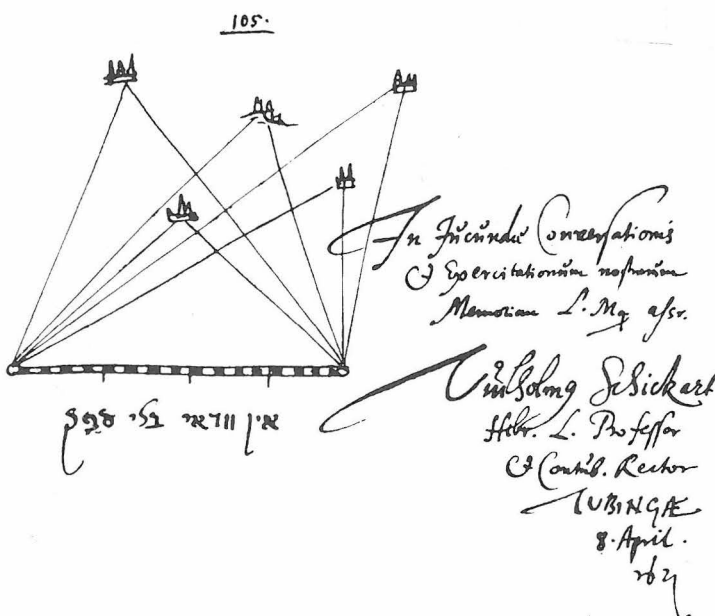 105.
אין וודאי בלי ספק
In Jucundae Conversationis
& Exercitationum nostrarum
Memoriam L. Mq
Wilhelmus Schickart
Hebr. L. Professor
& Contub. Rector
TUBINGÆ
8. April.